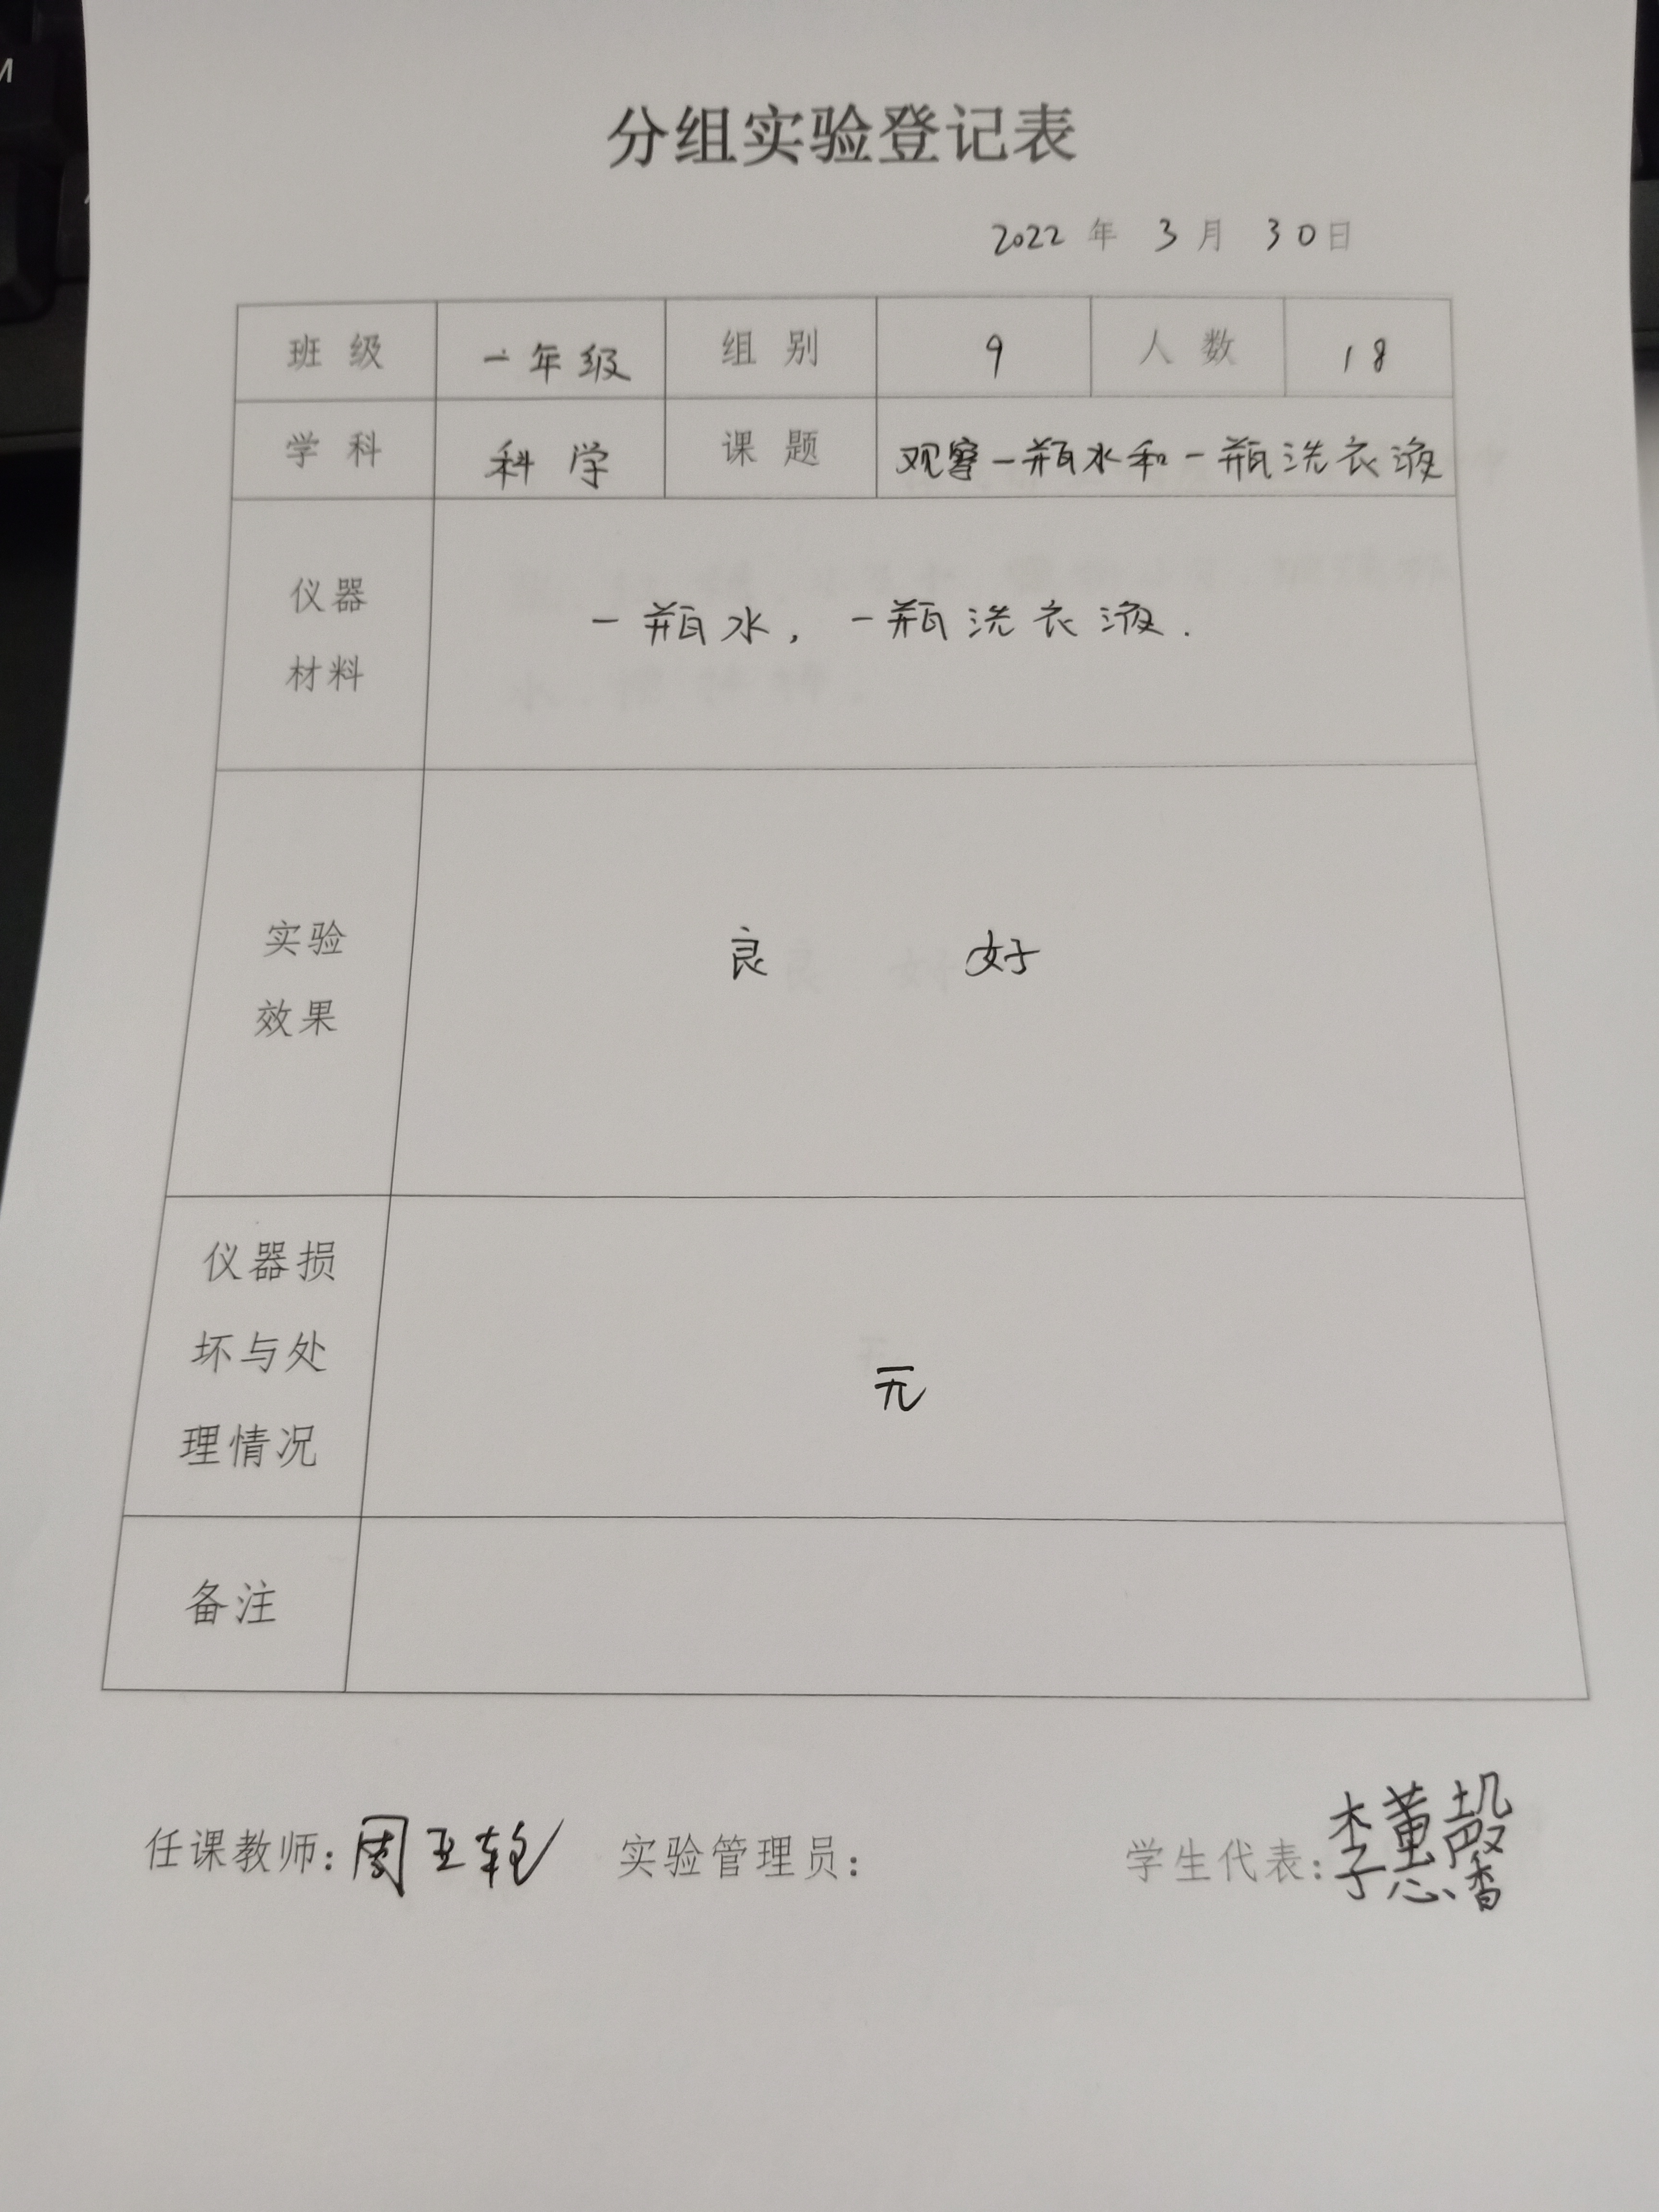 分组实验登记表
2022 年 3 月 30 日
班级 一年级 组别 9 人数 18
学科 科学 课题 观察一瓶水和一瓶洗衣液
仪器
材料
一瓶水，一瓶洗衣液.
实验
效果
良 好
仪器损
坏与处
理情况
无
备注
任课教师: 周亚 实验管理员: 学生代表: 李董馨